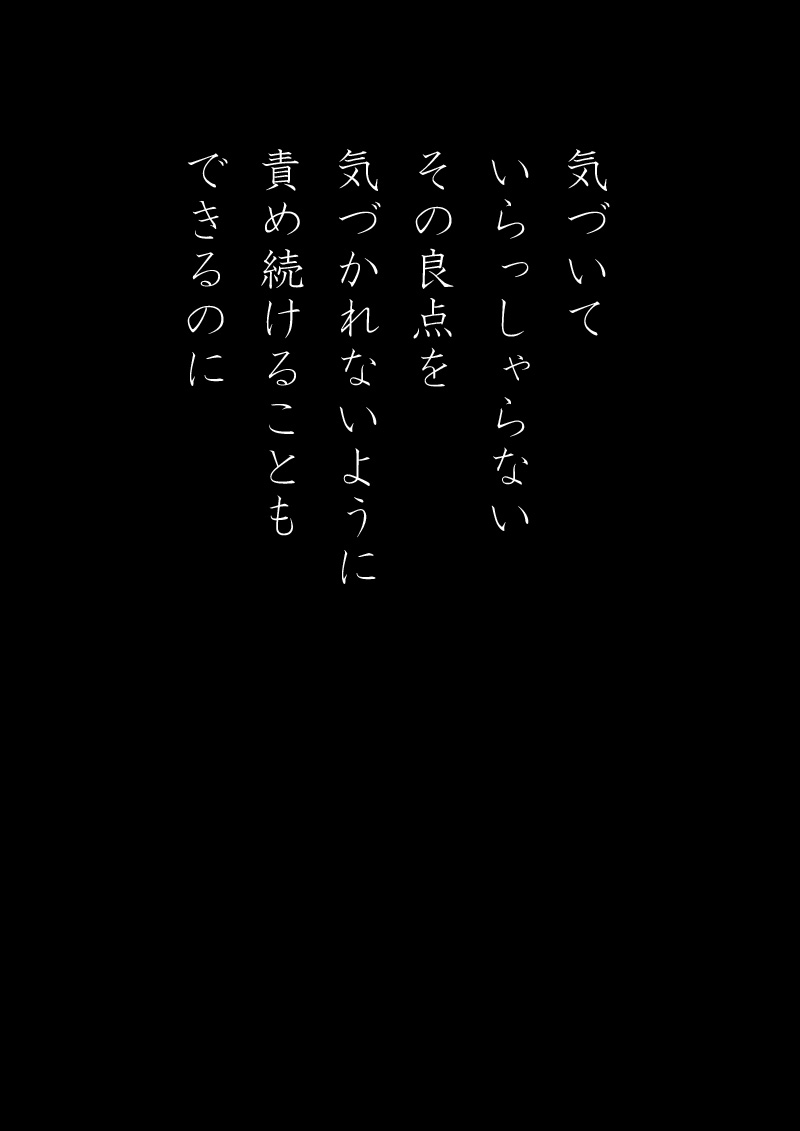 気づいて
いらっしゃらない
その良点を
気づかれないように
責め続けることも
できるのに